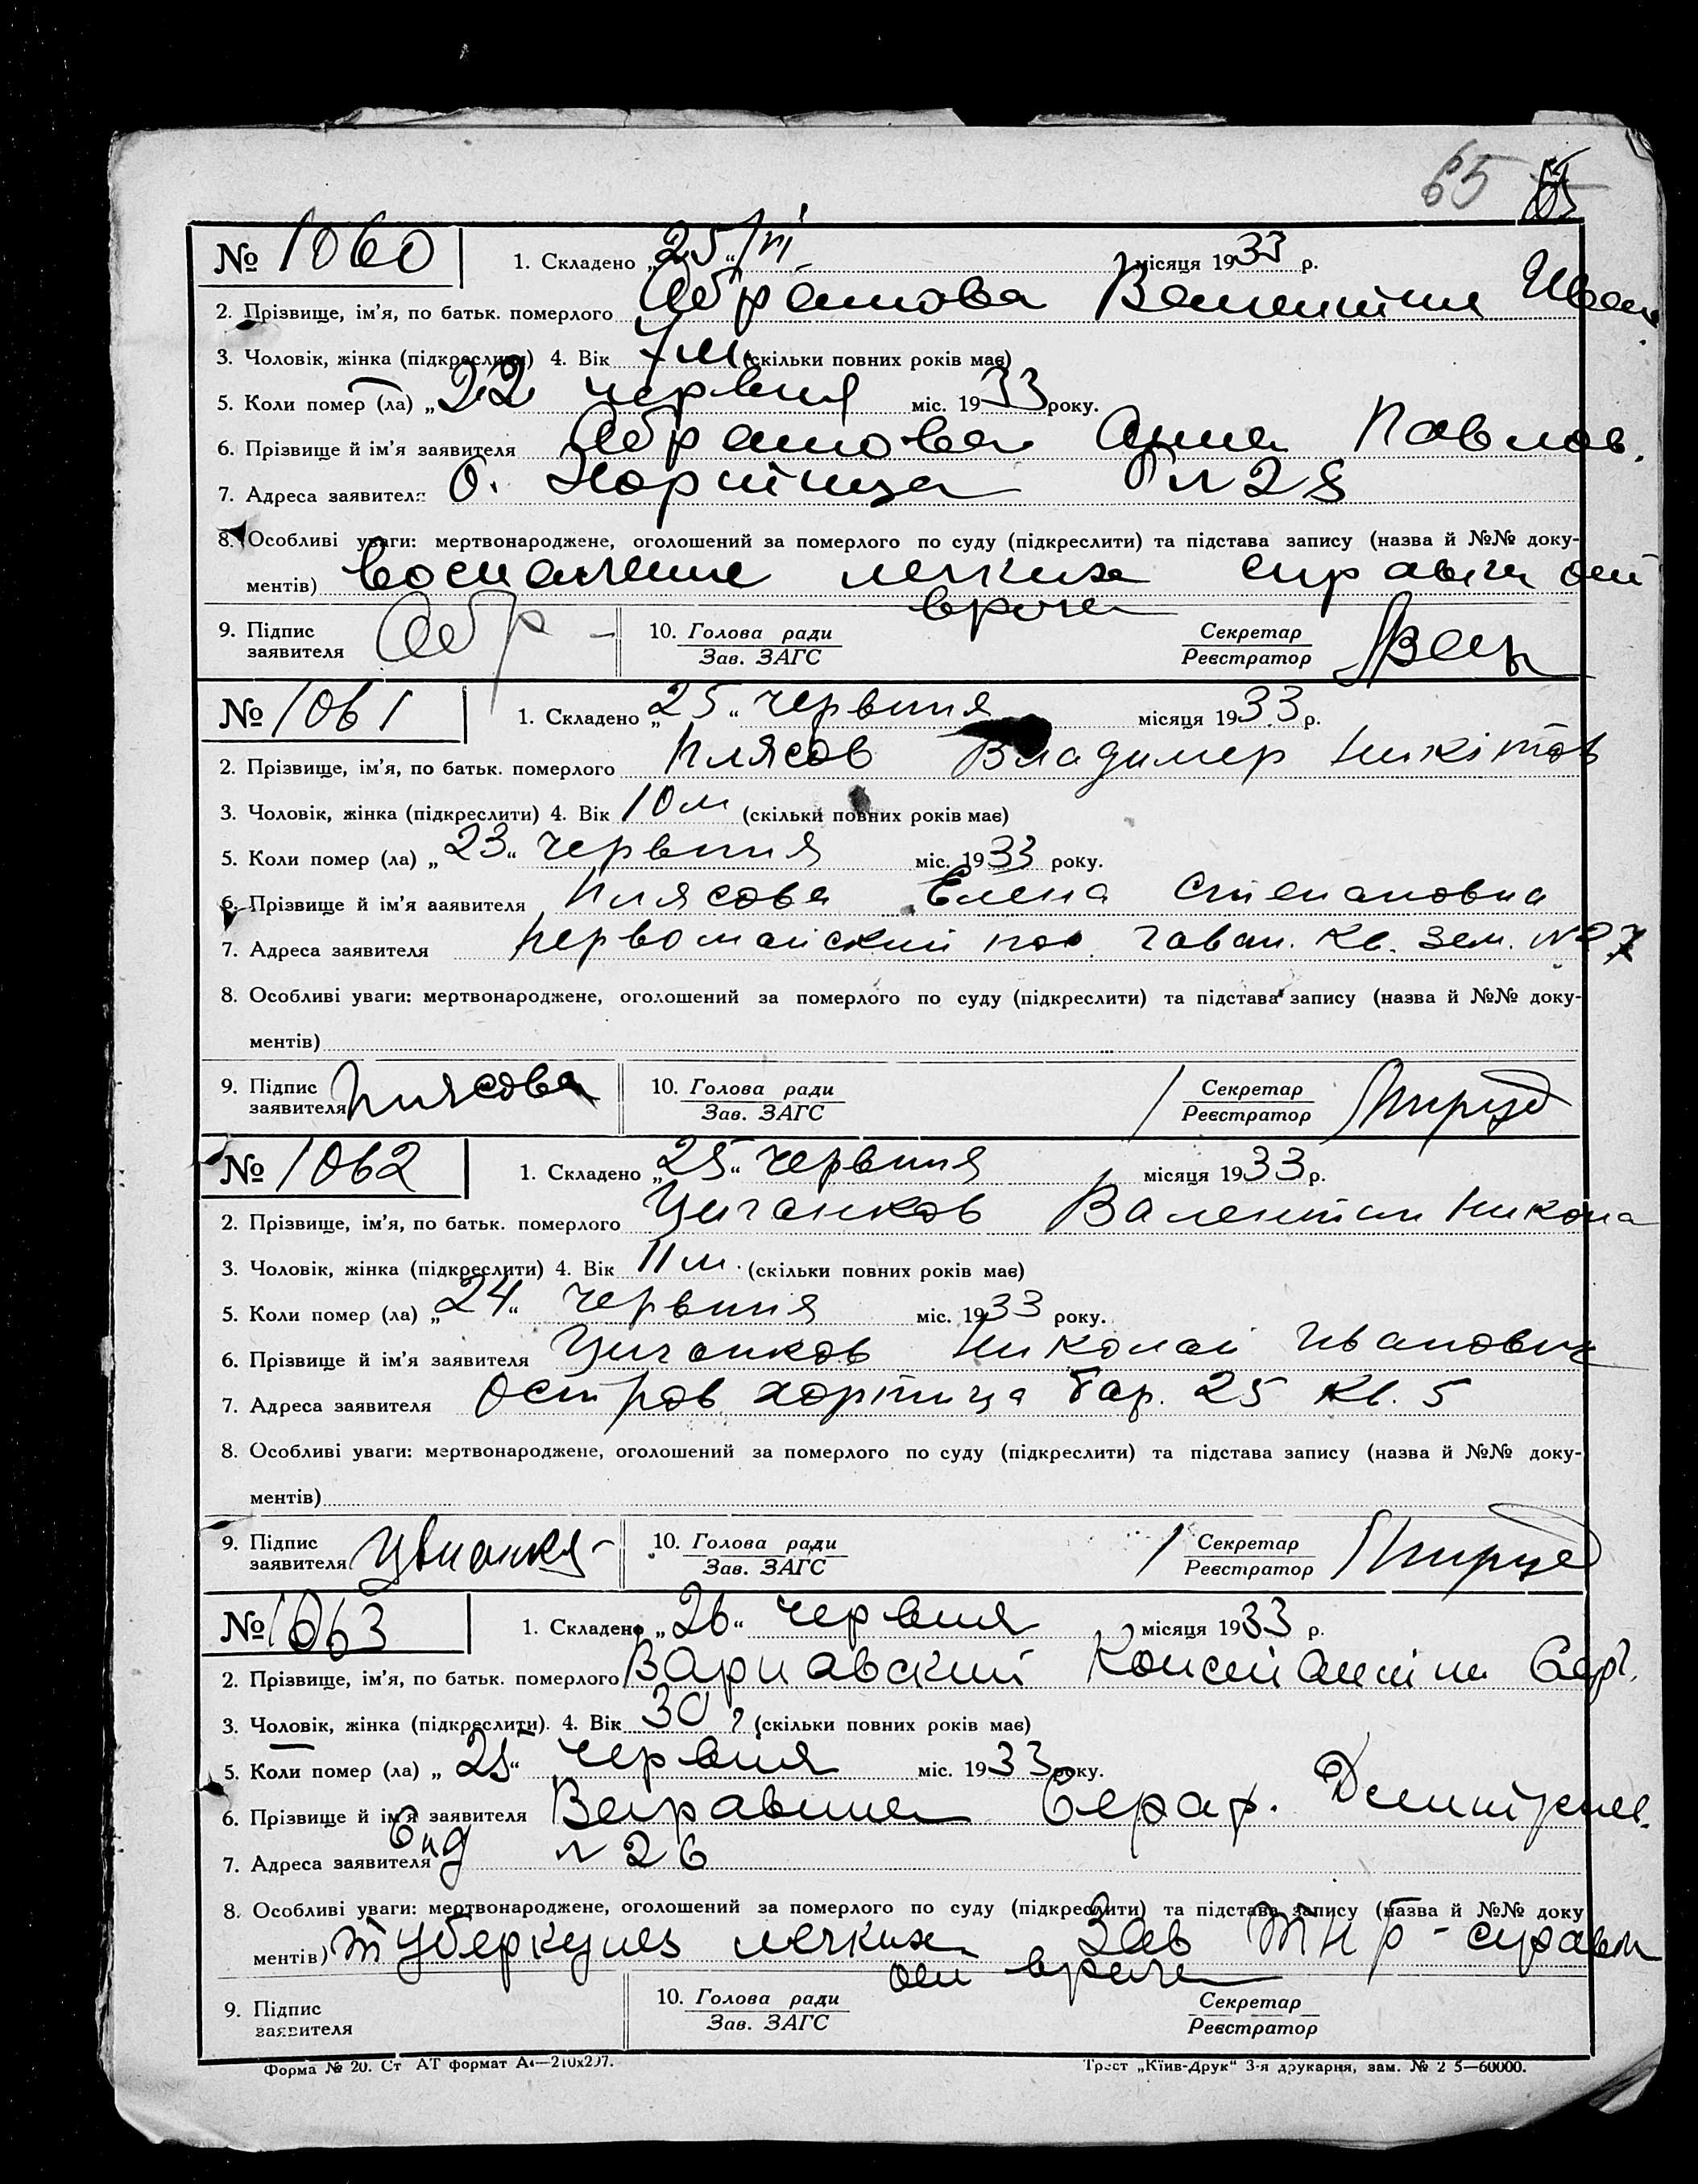 65
№ 1060 1. Складено „25“ VI місяця 1933 р.
2. Прізвище, ім'я, по батьк. померлого Абрамова Валентина Иван.
3. Чоловік, жінка (підкреслити) 4. Вік 7 м. (скільки повних років має)
5. Коли помер (ла) „22 червня міс. 1933 року.
6. Прізвище й ім'я заявителя Абрамова Анна Павлов.
7. Адреса заявителя О. Хортица
8. Особливі уваги: мертвонароджене, оголошений за померлого по суду (підкреслити) та підстава запису (назва й №№ доку-
ментів) воспаление легких справка от
врача
9. Підпис заявителя Абр 10. Голова ради Зав. ЗАГС Секретар Реєстратор
№ 1061 1. Складено „25“ червня місяця 1933 р.
2. Прізвище, ім'я, по батьк. померлого Плясов Владимер Никітов
3. Чоловік, жінка (підкреслити) 4. Вік 10 м (скільки повних років має)
5. Коли помер (ла) „23“ червня міс. 1933 року.
6. Прізвище й ім'я заявителя Плясова Елена Степановна
7. Адреса заявителя Первомайский пос. Гаван. Кв. Зем. №27
8. Особливі уваги: мертвонароджене, оголошений за померлого по суду (підкреслити) та підстава запису (назва й №№ доку-
ментів)
9. Підпис заявителя Плясова 10. Голова ради Зав. ЗАГС Секретар Реєстратор
№ 1062 1. Складено „25“ червня місяця 1933 р.
2. Прізвище, ім'я, по батьк. померлого Циганков Валентин Никола
3. Чоловік, жінка (підкреслити) 4. Вік 11 м. (скільки повних років має)
5. Коли помер (ла) „24“ червня міс. 1933 року.
6. Прізвище й ім'я заявителя Циганков Николай Иванович
7. Адреса заявителя Остров хортица бар. 25 кв. 5
8. Особливі уваги: мертвонароджене, оголошений за померлого по суду (підкреслити) та підстава запису (назва й №№ доку-
ментів)
9. Підпис заявителя 10. Голова ради Зав. ЗАГС Секретар Реєстратор
№ 1063 1. Складено „26“ червня місяця 1933 р.
2. Прізвище, ім'я, по батьк. померлого Варнавский Константин
3. Чоловік, жінка (підкреслити). 4. Вік 30 (скільки повних років має)
5. Коли помер (ла) „25“ червня міс. 1933 року.
6. Прізвище й ім'я заявителя Сераф. Дмитриев.
7. Адреса заявителя №26
8. Особливі уваги: мертвонароджене, оголошений за померлого по суду (підкреслити) та підстава запису (назва й №№ доку
ментів) туберкулез легких справк
от врача
9. Підпис заявителя 10. Голова ради Зав. ЗАГС Секретар Реєстратор
Форма № 20. Ст АТ формат А4—210х297. Трест „Київ-Друк“ 3-я друкарня, зам. № 2 5—60000.